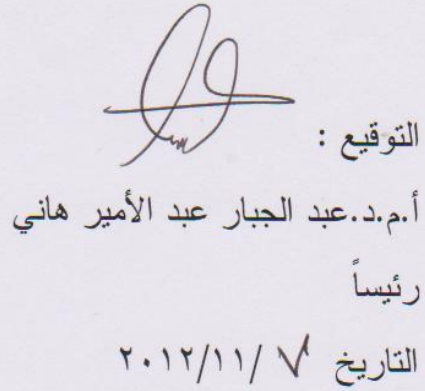 التوقيع :
أ.م.د.عبد الجبار عبد الأمير هاني
رئيساً
التاريخ ٧ /٢٠١٢/١١